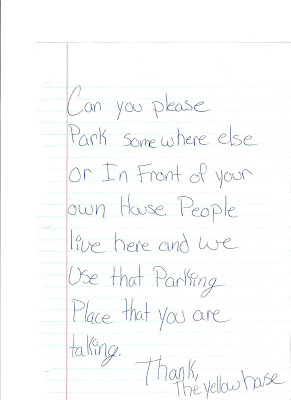 Can you please
Park somewhere else
or In Front of your
own House People
live here and we
Use that Parking
Place that you are
taking.
Thank,
The yellow house